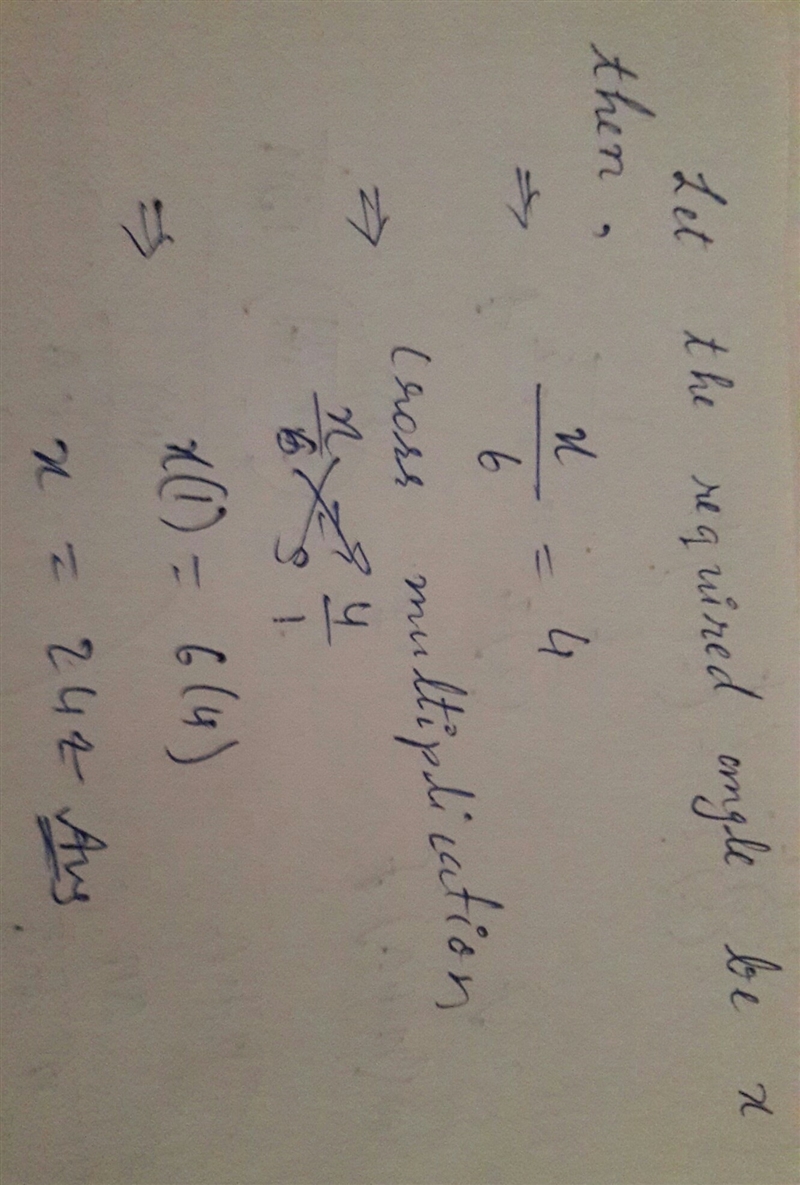 Let the required angle be x
then,
⇒ x/6 = 4
⇒ Cross multiplication
x/6 4/1
⇒ x(1) = 6(4)
x = 24 Ans